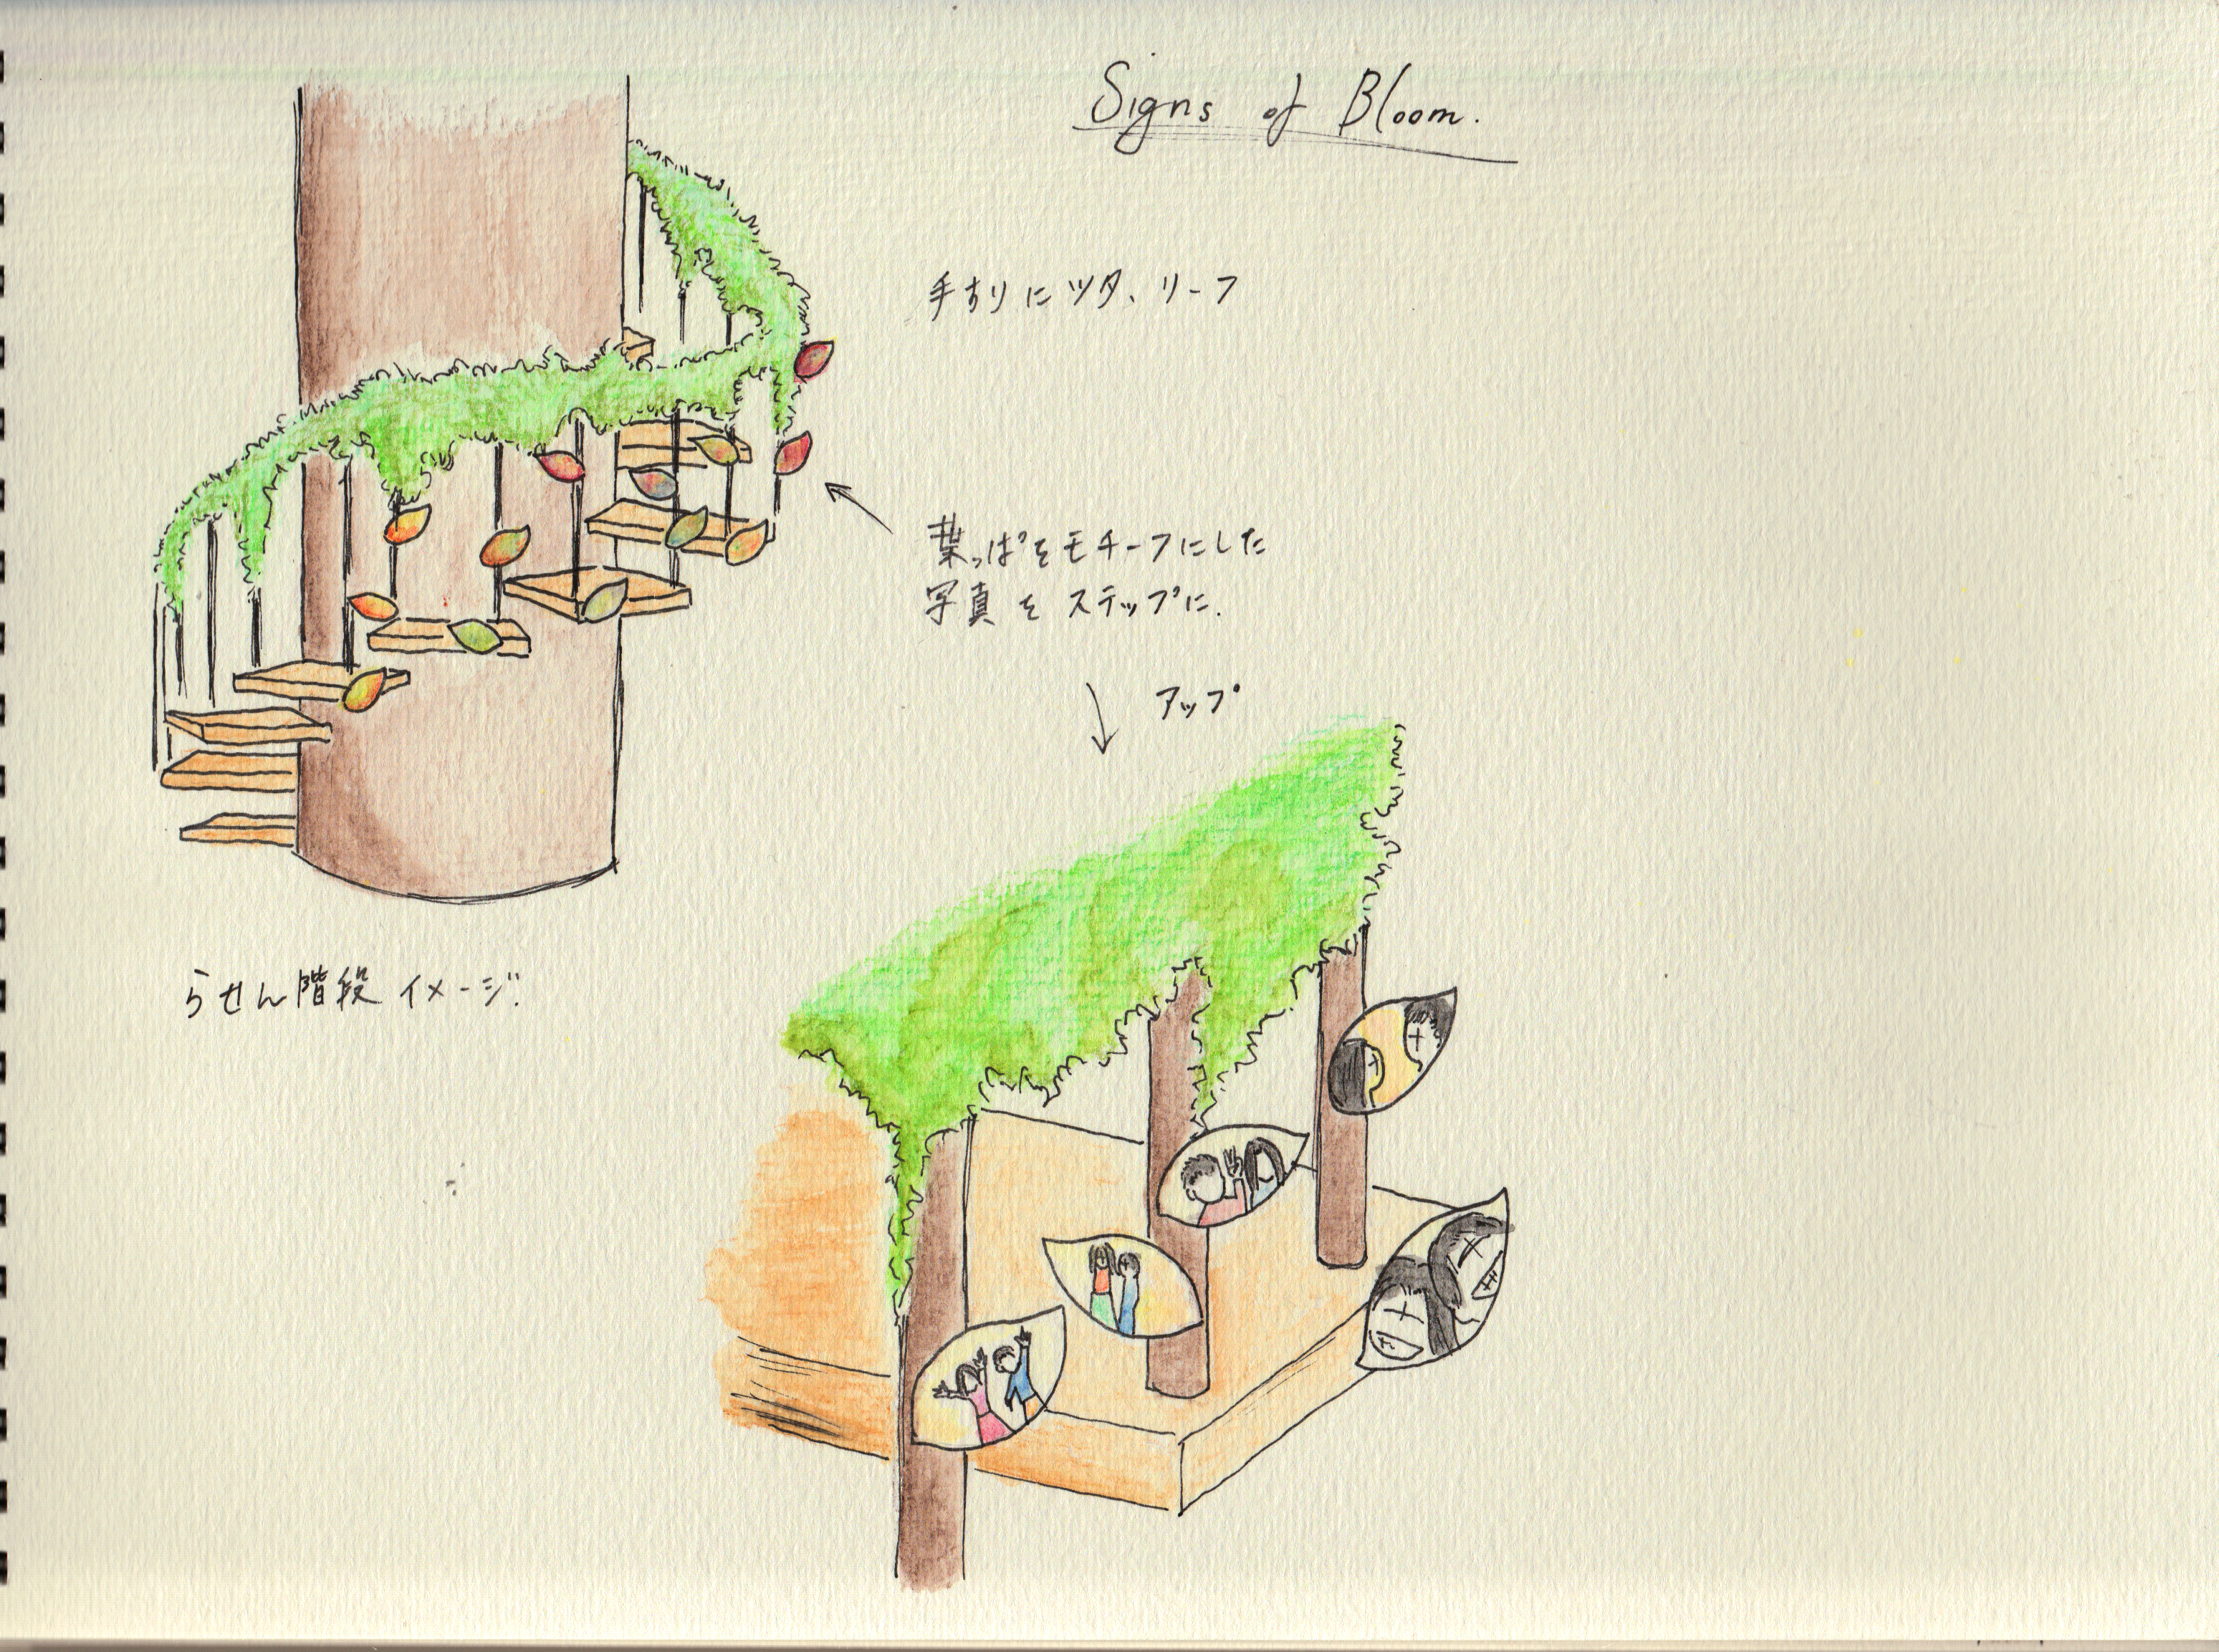 Signs of Bloom.
手すりにツタ、リーフ
葉っぱをモチーフにした
写真をステップに.
アップ
らせん階段イメージ.